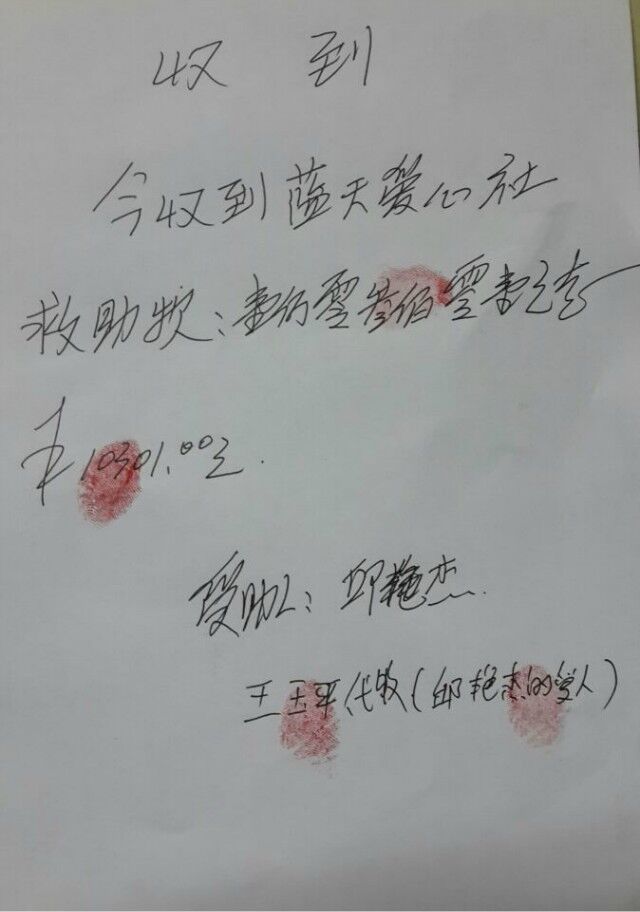 收到
今收到蓝天爱心社
救助款：壹万零叁佰零壹元整
￥10301.00元.
受助人：邱艳杰
王玉平代收(邱艳杰的爱人)